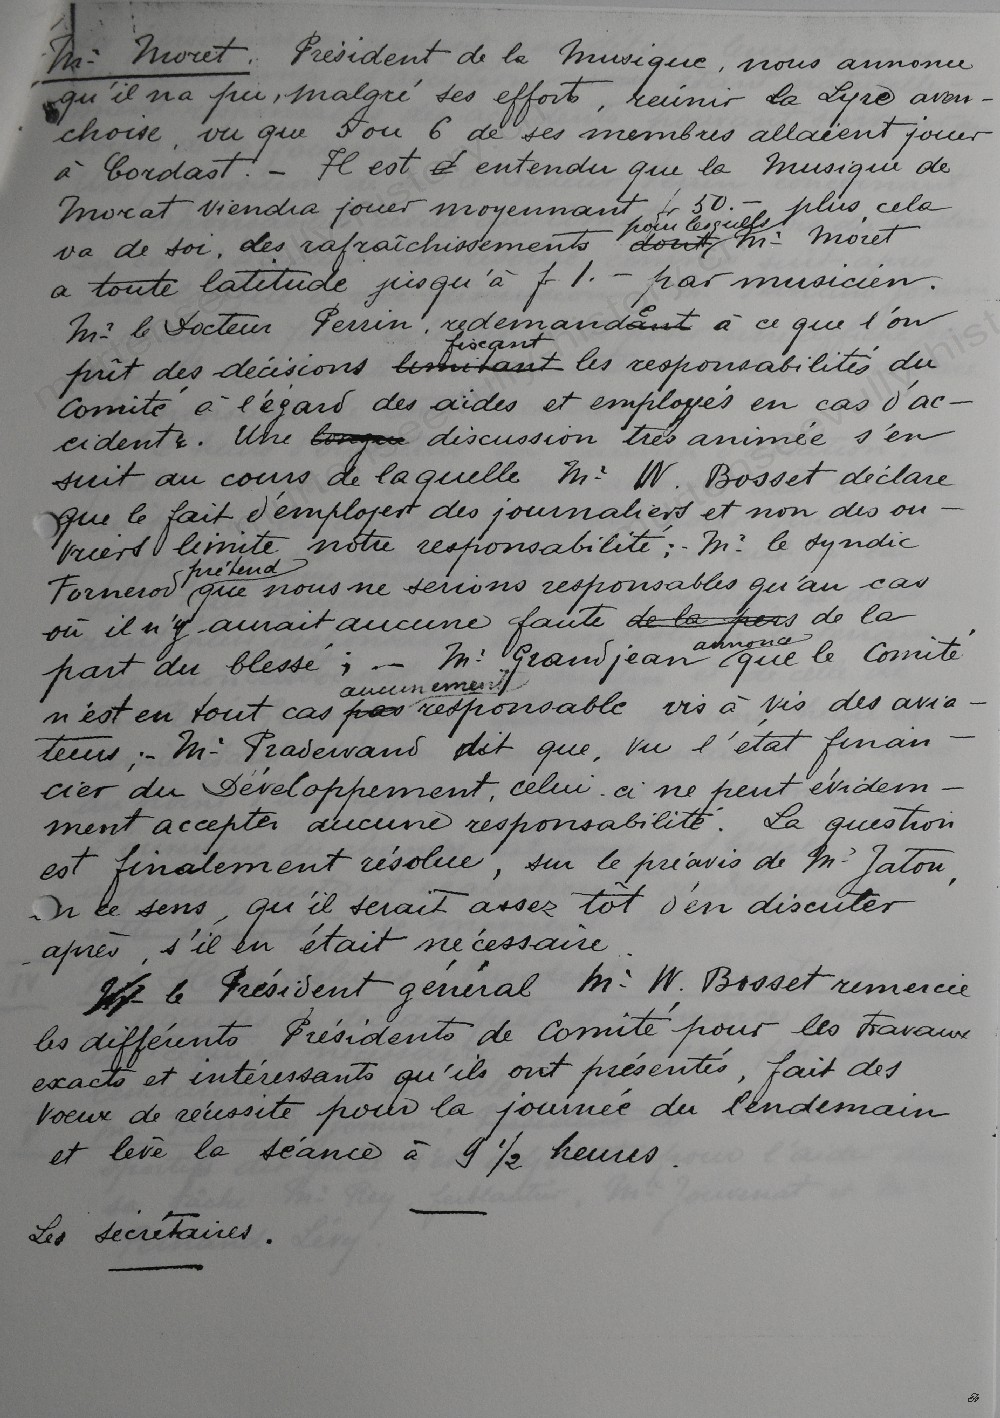 Mr Moret. Président de la Musique, nous annonce
qu'il n'a pu, malgré ses efforts, réunir la Lyre aven-
choise, vu que 5 ou 6 de ses membres allaient jouer
à Cordast. - Il est entendu que la Musique de
Morat viendra jouer moyennant fr 50.- plus, cela
va de soi, des rafraîchissements dont pour lesquels Mr Moret
a toute latitude jusqu'à fr 1.- par musicien.
Mr le Docteur Perrin, redemande à ce que l'on
prît des décisions limitant fixant les responsabilités du
Comité à l'égard des aides et employés en cas d'ac-
cident. Une longue discussion très animée s'en
suit au cours de laquelle Mr W. Bosset déclare
que le fait d'employer des journaliers et non des ou-
vriers limite notre responsabilité; - Mr le syndic
Fornerod prétend que nous ne serions responsables qu'au cas
où il n'y aurait aucune faute de la pers de la
part du blessé; - Mr Grandjean annonce que le Comité
n'est en tout cas pas aucunement responsable vis à vis des avia-
teurs; - Mr Pradervand dit que, vu l'état finan-
cier du Développement, celui-ci ne peut évidem-
ment accepter aucune responsabilité. La question
est finalement résolue, sur le préavis de Mr Jaton,
en ce sens, qu'il serait assez tôt d'en discuter
après, s'il en était nécessaire
le Président général Mr W. Bosset remercie
les différents Présidents de Comité pour les travaux
exacts et intéressants qu'ils ont présentés, fait des
voeux de réussite pour la journée du lendemain
et lève la séance à 9 1/2 heures.
Les secrétaires.